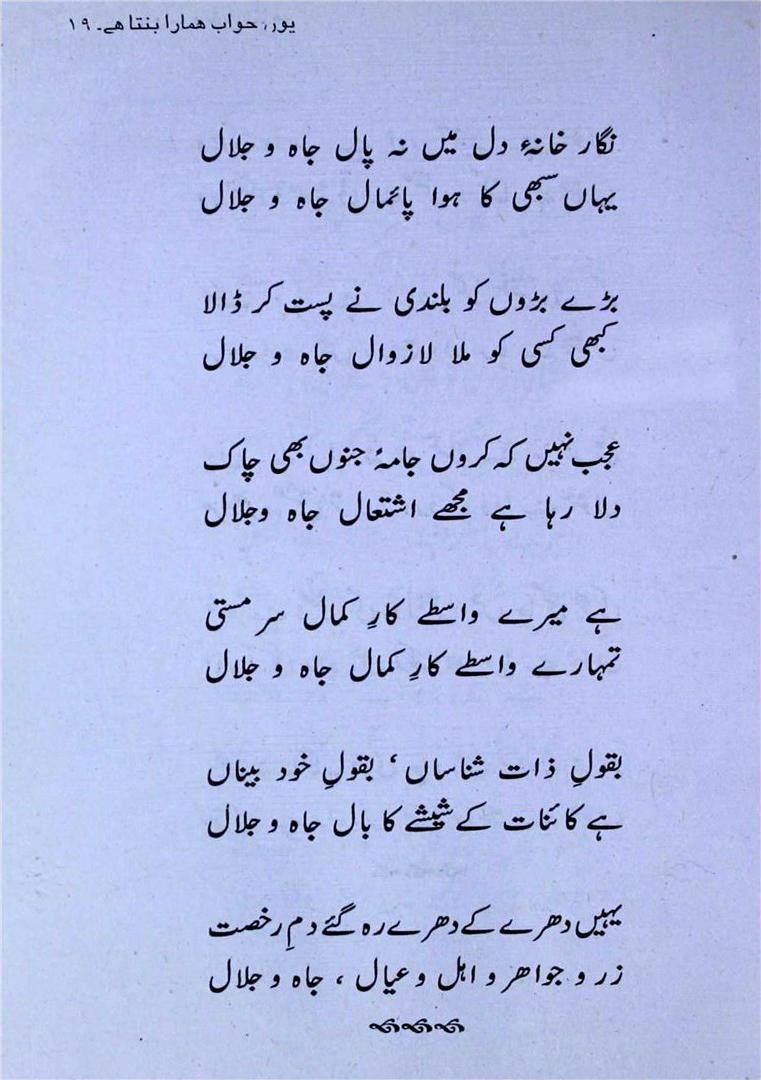 یوں، خواب ہمارا بنتا ہے۔ ۱۹
نگار خانۂ دل میں نہ پال جاہ و جلال
یہاں سبھی کا ہوا پائمال جاہ و جلال
بڑے بڑوں کو بلندی نے پست کر ڈالا
کبھی کسی کو ملا لازوال جاہ و جلال
عجب نہیں کہ کروں جامۂ جنوں بھی چاک
دلا رہا ہے مجھے اشتعال جاہ وجلال
ہے میرے واسطے کارِ کمال سر مستی
تمہارے واسطے کارِ کمال جاہ و جلال
بقولِ ذات شناساں ، بقولِ خود بیناں
ہے کائنات کے شیشے کا بال جاہ و جلال
یہیں دھرے کے دھرے رہ گئے دمِ رخصت
زر و جواھر و اہل و عیال ، جاہ و جلال